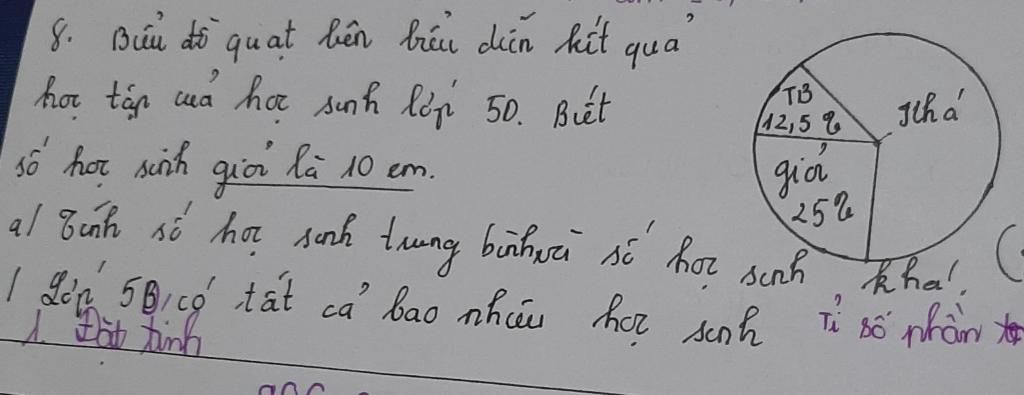 8. Biểu đồ quạt bên biểu diễn kết quả
học tập của học sinh lớp 5D. Biết
số học sinh giỏi là 10 em.
a/ Tính số học sinh trung bình và số học sinh khá.
/ Lớp 5B, có tất cả bao nhiêu học sinh
Tỉ số phần
1. Đặt tính
TB
12,5%
Khá
giỏi
25%